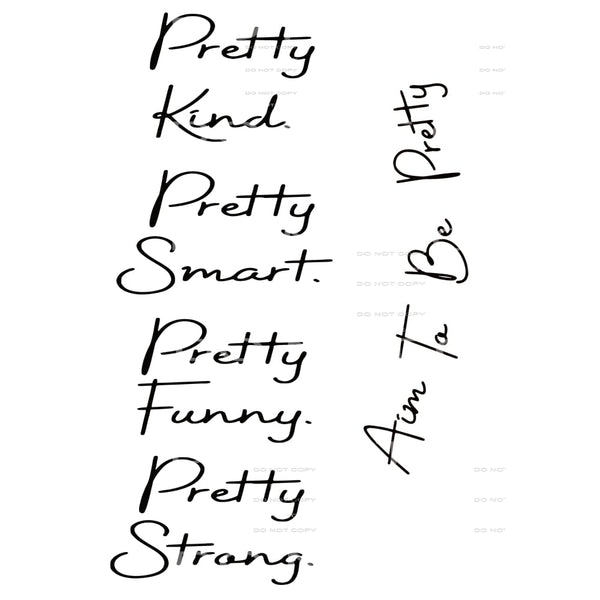 Pretty
Kind.
Pretty
Smart.
Pretty
Funny.
Pretty
Strong.
Aim To Be Pretty
DO NOT COPY
DO NOT COPY
DO NOT COPY
DO NOT COPY
DO NOT COPY
DO NOT COPY
DO NOT COPY
DO NOT COPY
DO NOT COPY